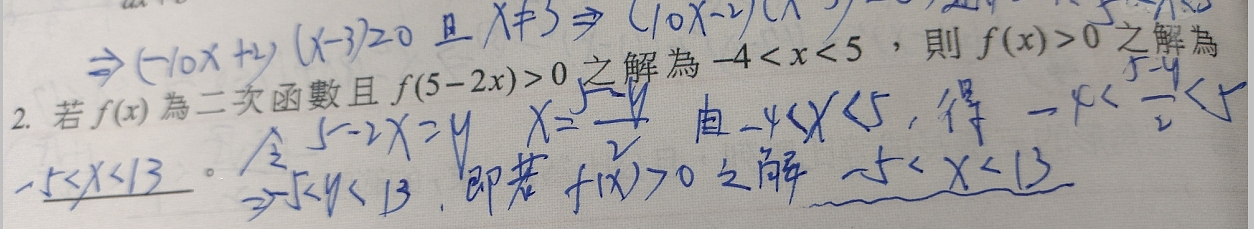 ⇒ (-10x+2)(x-3)≥0 且 x≠3 ⇒ (10x-2)(x
2. 若 f(x) 為二次函數且 f(5-2x)>0 之解為 -4<x<5，則 f(x)>0 之解為
令 5-2x=y x=\frac{5-y}{2} 由 -4<x<5, 得 -4<\frac{5-y}{2}<5
-5<x<13 。 ⇒-5<y<13, 即若 f(x)>0 之解 -5<x<13